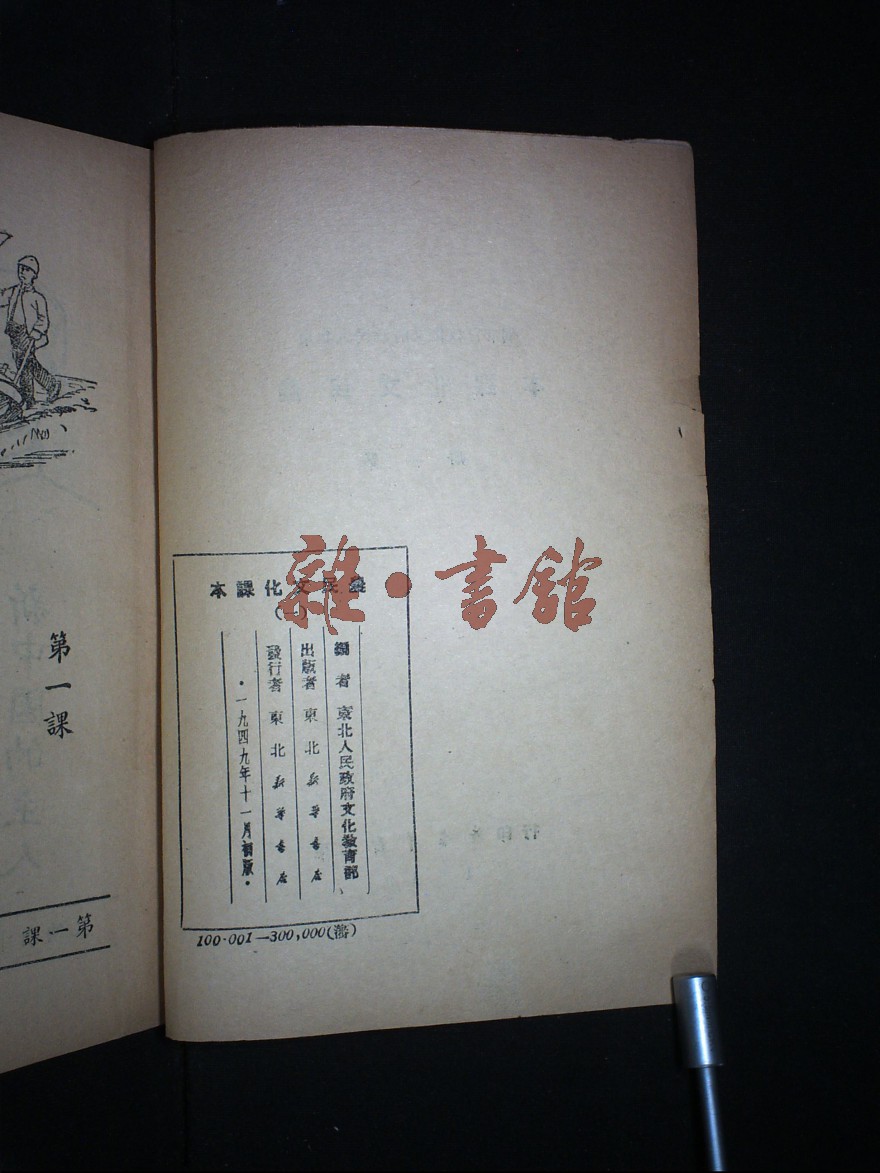 雜·書館
農民文化課本
(一)
編者 東北人民政府文化教育部
出版者 東北新華書店
發行者 東北新華書店
·一九四九年十一月初版·
100.001—300,000(瀋)
第一課
第一課